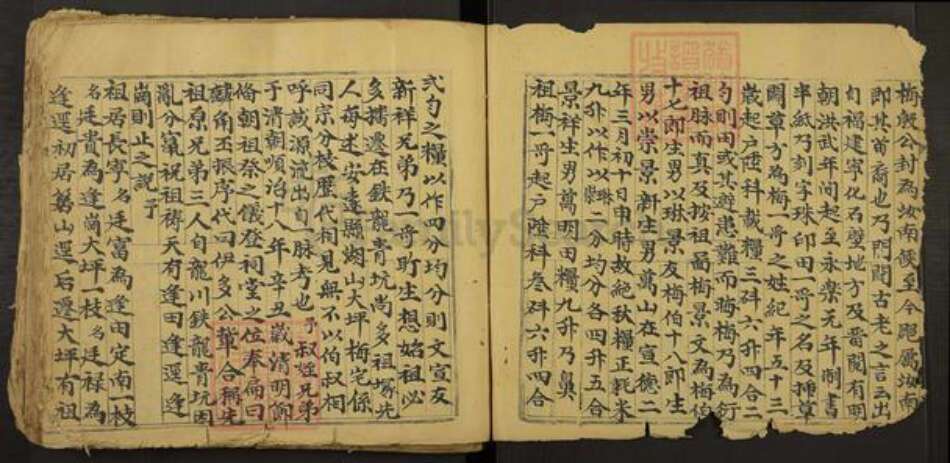 梅殷公封為汝南侯至今照廣汝南
即其苗裔也乃門閭古老之言云出
自福建寧化石壁地方及啚閱有明
朝洪武年間起至永樂元年制書
半紙乃刻字珠印田一哥之名及挿草
閗草方為梅一哥之姓紀年五十三
歲起戶陞科載糧三斗六升四合二
勺則田或其遊患難而梅乃為行
祖脉而真及按祖啚梅景文為梅伯
十七郎生男以琳景友梅伯十八郎生
男以崇景新生男萬山在宣德二
年三月初十日申時故絕秋糧正耗米
九升以作以琳以崇二分均分各四升五合
景祥生男萬明田糧九升乃與
祖梅一哥起戶陞科叁斗六升四合
弍勺之糧以作四分均分則文宣友
新祥兄弟乃一哥所生想始祖必
多播遷在鉄龍青坑尚多祖塚先
人每述安遠縣湖山大坪梅宅係
同宗分枝歷代相見無不以伯叔相
呼哉源流出自一脉考也予叔姪兄弟
于清朝順治十八年辛丑歲清明節
脩朝祖祭之儀登祠堂之位奉扁曰
祖原兄弟三人自龍川鉄龍青坑因
亂分竄祝祖禱天有逢田逢逕逢
崗則止之說予
祖居長寧名廷富為逢田定南一枝
名廷貴為逢崗大坪一枝名廷祿為
逢逕初居勞山逕后遷大坪有祖